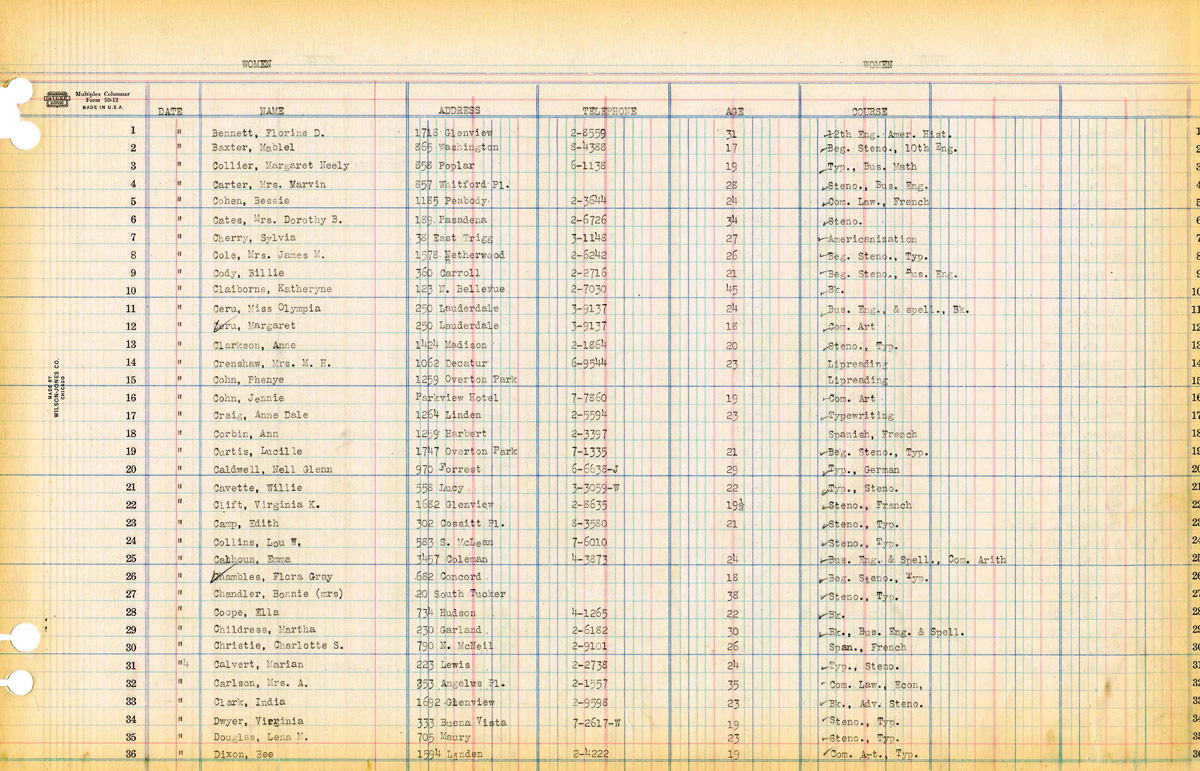 WOMEN WOMEN
Multiplex Columnar
Form 50-12
MADE IN U.S.A.
DATE NAME ADDRESS TELEPHONE AGE COURSE
1 " Bennett, Florine D. 1718 Glenview 2-8559 31 12th Eng. Amer. Hist. 1
2 " Baxter, Mablel 865 Washington 8-4388 17 Beg. Steno., 10th Eng. 2
3 " Collier, Margaret Neely 858 Poplar 6-1138 19 Typ., Bus. Math 3
4 " Carter, Mrs. Marvin 857 Whitford Pl. 28 Steno., Bus. Eng. 4
5 " Cohen, Bessie 1185 Peabody 2-3644 24 Com. Law., French 5
6 " Cates, Mrs. Dorothy B. 189 Pasadena 2-6726 34 Steno. 6
7 " Cherry, Sylvia 38 East Trigg 3-1148 27 Americanization 7
8 " Cole, Mrs. James M. 1578 Netherwood 2-6242 26 Beg. Steno., Typ. 8
9 " Cody, Billie 360 Carroll 2-2716 21 Beg. Steno., Bus. Eng. 9
10 " Claiborne, Katheryne 123 N. Bellevue 2-7030 45 Bk. 10
11 " Ceru, Miss Olympia 250 Lauderdale 3-9137 24 Bus. Eng., & spell., Bk. 11
12 " Ceru, Margaret 250 Lauderdale 3-9137 18 Com. Art 12
13 " Clarkson, Anne 1424 Madison 2-1864 20 Steno., Typ. 13
14 " Crenshaw, Mrs. M. H. 1062 Decatur 6-9544 23 Lipreading 14
15 " Cohn, Phenye 1259 Overton Park Lipreading 15
16 " Cohn, Jennie Parkview Hotel 7-7860 19 Com. Art 16
17 " Craig, Anne Dale 1264 Linden 2-5594 23 Typewriting 17
18 " Corbin, Ann 1259 Harbert 2-3397 Spanish, French 18
19 " Curtis, Lucille 1747 Overton Park 7-1335 21 Beg. Steno., Typ. 19
20 " Caldwell, Nell Glenn 970 Forrest 6-6638-J 29 Typ., German 20
21 " Cavette, Willie 558 Lucy 3-3059-W 22 Typ., Steno. 21
22 " Clift, Virginia K. 1682 Glenview 2-8635 19½ Steno., French 22
23 " Camp, Edith 302 Cossitt Pl. 8-3580 21 Steno., Typ. 23
24 " Collins, Lou W, 583 S. McLean 7-6010 Steno., Typ. 24
25 " Calhoun, Emma 3457 Coleman 4-3873 24 Bus. Eng. & Spell., Com. Arith 25
26 " Chambles, Flora Gray 682 Concord 18 Beg. Steno., Typ. 26
27 " Chandler, Bonnie (mrs) 20 South Tucker 38 Steno., Typ. 27
28 " Coope, Ella 734 Hudson 4-1265 22 Bk. 28
29 " Childress, Martha 230 Garland 2-6182 30 Bk., Bus. Eng. & Spell. 29
30 " Christie, Charlotte S. 790 N. McNeil 2-9101 26 Span., French 30
31 "4 Calvert, Marian 223 Lewis 2-2738 24 Typ., Steno. 31
32 " Carlson, Mrs. A. 353 Angelus Pl. 2-1557 35 Com. Law., Econ, 32
33 " Clark, India 1692 Glenview 2-9598 23 Bk., Adv. Steno. 33
34 " Dwyer, Virginia 333 Buena Vista 7-2617-W 19 Steno., Typ. 34
35 " Douglas, Lena M. 705 Maury 23 Steno., Typ. 35
36 " Dixon, Bee 1594 Linden 2-4222 19 Com. Art., Typ. 36
MADE BY
WILSON-JONES CO.
CHICAGO